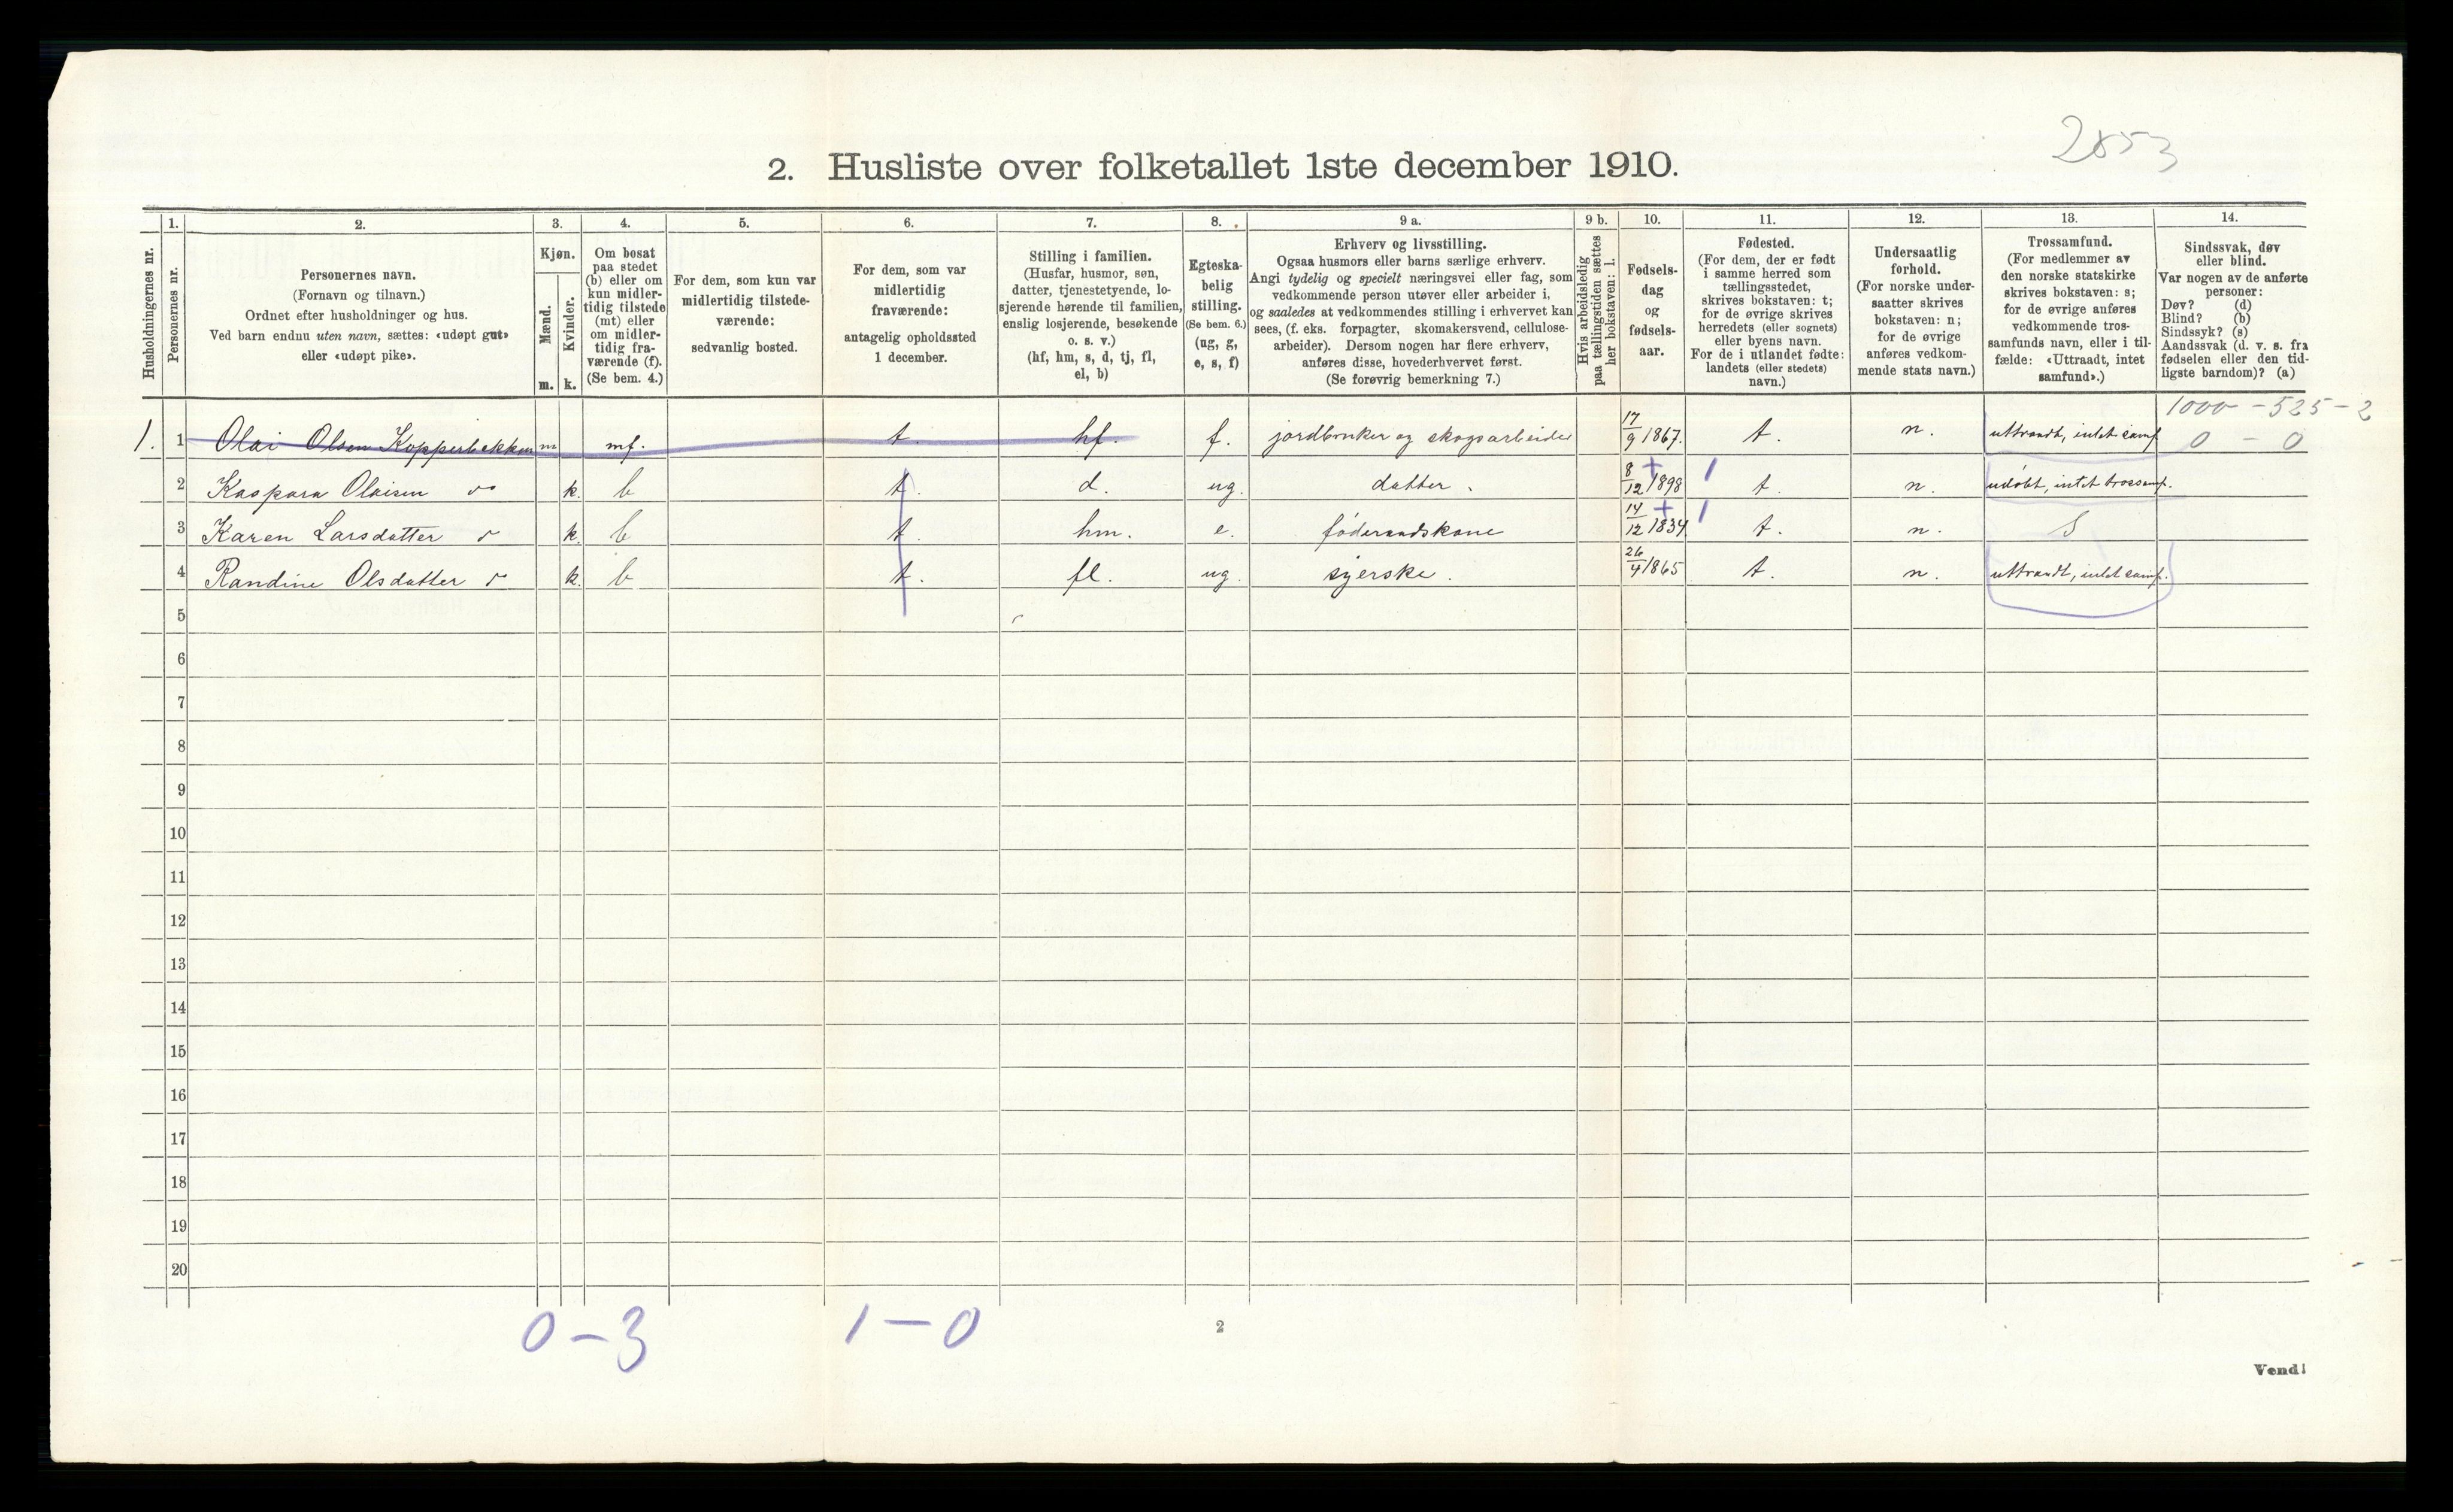 2853
2. Husliste over folketallet 1ste december 1910.
Husholdningernes nr.
1.
Personernes nr.
2.
Personernes navn.
(Fornavn og tilnavn.)
Ordnet efter husholdninger og hus.
Ved barn endnu uten navn, sættes: «udøpt gut»
eller «udøpt pike».
3.
Kjøn.
Mænd.
Kvinder.
m.
k.
4.
Om bosat
paa stedet
(b) eller om
kun midler-
tidig tilstede
(mt) eller
om midler-
tidig fra-
værende (f).
(Se bem. 4.)
5.
For dem, som kun var
midlertidig tilstede-
værende:
sedvanlig bosted.
6.
For dem, som var
midlertidig
fraværende:
antagelig opholdssted
1 december.
7.
Stilling i familien.
(Husfar, husmor, søn,
datter, tjenestetyende, lo-
sjerende hørende til familien,
enslig losjerende, besøkende
o. s. v.)
(hf, hm, s, d, tj, fl,
el, b)
8.
Egteska-
belig
stilling.
(Se bem. 6.)
(ug, g,
e, s, f)
9 a.
Erhverv og livsstilling.
Ogsaa husmors eller barns særlige erhverv.
Angi tydelig og specielt næringsvei eller fag, som
vedkommende person utøver eller arbeider i,
og saaledes at vedkommendes stilling i erhvervet kan
sees, (f. eks. forpagter, skomakersvend, cellulose-
arbeider). Dersom nogen har flere erhverv,
anføres disse, hovederhvervet først.
(Se forøvrig bemerkning 7.)
9 b.
Hvis arbeidsledig
paa tællingstiden sættes
her bokstaven: l.
10.
Fødsels-
dag
og
fødsels-
aar.
11.
Fødested.
(For dem, der er født
i samme herred som
tællingsstedet,
skrives bokstaven: t;
for de øvrige skrives
herredets (eller sognets)
eller byens navn.
For de i utlandet fødte:
landets (eller stedets)
navn.)
12.
Undersaatlig
forhold.
(For norske under-
saatter skrives
bokstaven: n;
for de øvrige
anføres vedkom-
mende stats navn.)
13.
Trossamfund.
(For medlemmer av
den norske statskirke
skrives bokstaven: s;
for de øvrige anføres
vedkommende tros-
samfunds navn, eller i til-
fælde: «Uttraadt, intet
samfund».)
14.
Sindssvak, døv
eller blind.
Var nogen av de anførte
personer:
Døv? (d)
Blind? (b)
Sindssyk? (s)
Aandssvak (d. v. s. fra
fødselen eller den tid-
ligste barndom)? (a)
1000 - 525 - 2
1. 1 Olai Olsen Kopperbekken m mf. t. hf. f. jordbruker og skogsarbeider 17/9 1867. t. n. uttraadt, intet samf 0 - 0
2 Kaspara Olaisen do k. b t. d. ug. datter. 8/12 1898 t. n. udöbt, intet trossamf.
3 Karen Larsdatter do k. b t. hm. e. föderaadskone 14/12 1834. t. n. S
4 Randine Olsdatter do k. b t. fl. ug. syerske. 26/4 1865 t. n. uttraadt, intet samf.
5
6
7
8
9
10
11
12
13
14
15
16
17
18
19
20
0 - 3 1 - 0
2
Vend!